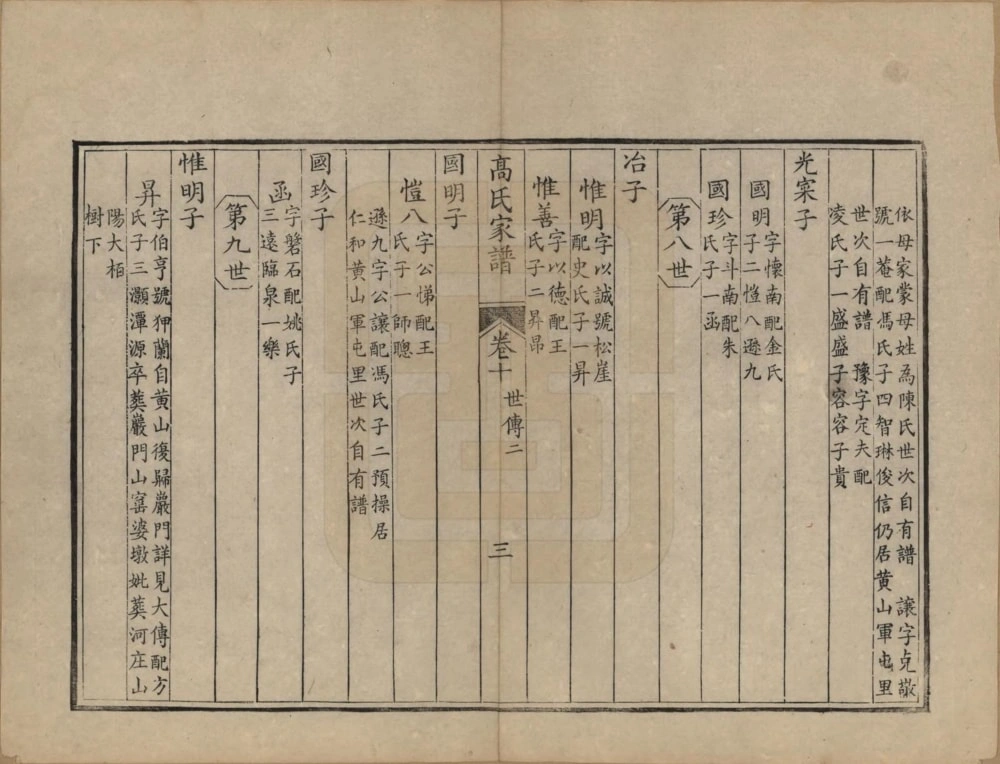 依母家蒙母姓為陳氏世次自有譜　讓字克敬
號一菴配馮氏子四智琳俊信仍居黄山軍屯里
世次自有譜　豫字定夫配
凌氏子一盛盛子容容子貴
光寀子
國明字懷南配金氏
子二愷八遜九
國珍字斗南配朱
氏子一函
第八世
冶子
惟明字以誠號松崖
配史氏子一昇
惟善字以德配王
氏子二昇昂
高氏家譜
卷十
世傳二
三
國明子
愷八字公悌配王
氏子一師聰
遜九字公讓配馮氏子二預操居
仁和黄山軍屯里世次自有譜
國珍子
函字磐石配姚氏子
三遠臨泉一樂
第九世
惟明子
昇字伯亨號狎蘭自黄山復歸巖門詳見大傳配方
氏子三灝潭源卒葬巖門山窑婆墩妣葬河庄山
陽大栢
樹下